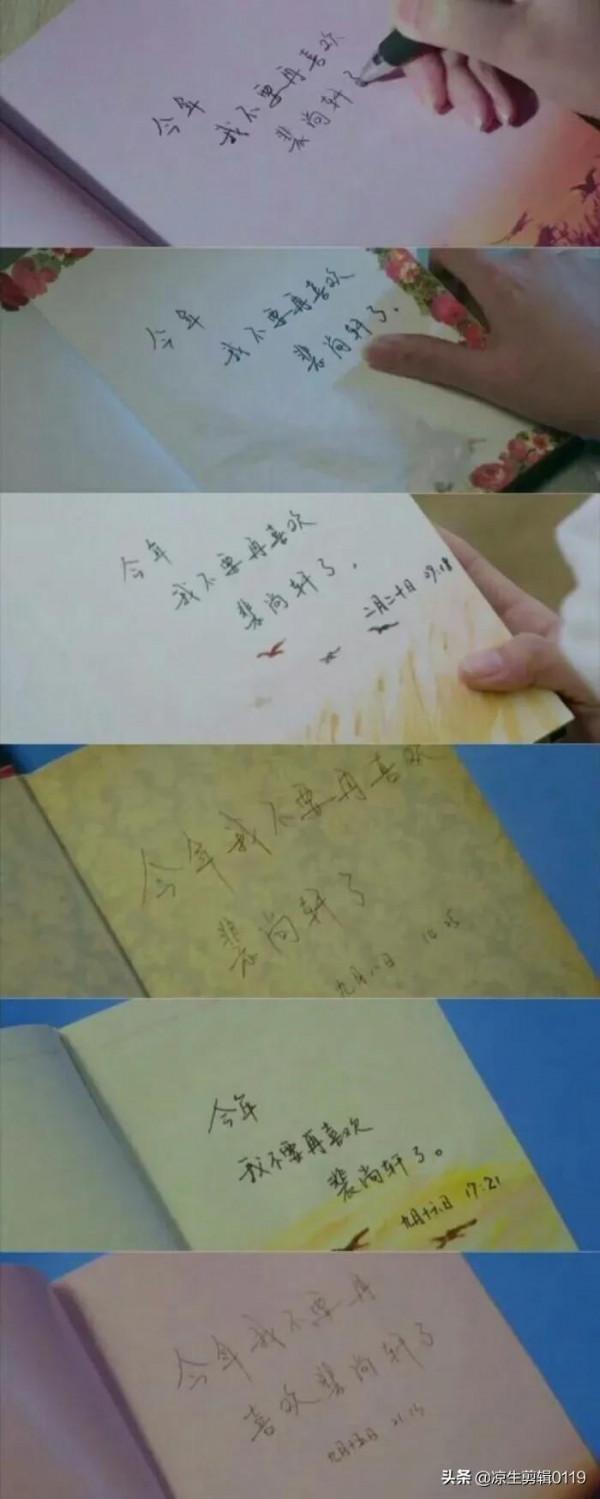 今年
我不要再喜欢
裴尚轩了
今年
我不要再喜欢
裴尚轩了.
今年
我不要再喜欢
裴尚轩了。
二月二十日 19:18
今年我不要再喜欢
裴尚轩了
九月八日
今年
我不要再喜欢
裴尚轩了。
九月十六日 17:21
今年我不要再
喜欢裴尚轩了
九月十五日 21:15
头条 @凉生剪辑0119